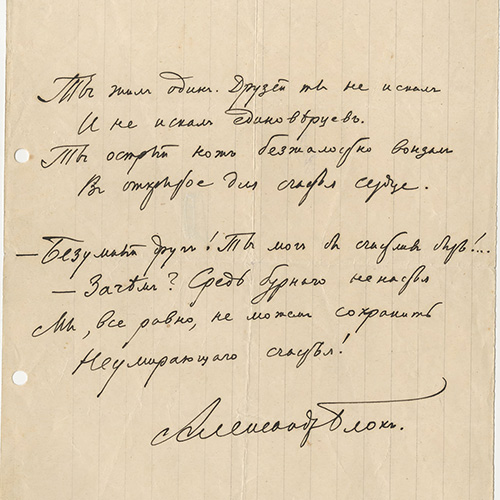 Ты жилъ одинъ. Друзей ты не искалъ
И не искалъ единовѣрцевъ.
Ты острый ножъ безжалостно вонзалъ
Въ открытое для счастья сердце.
— Безумный другъ! Ты могъ бы счастливъ быть!...
— Зачѣмъ? Средь бурнаго ненастья
Мы, все равно, не можемъ сохранить
Неумирающаго счастья!
Александръ Блокъ.